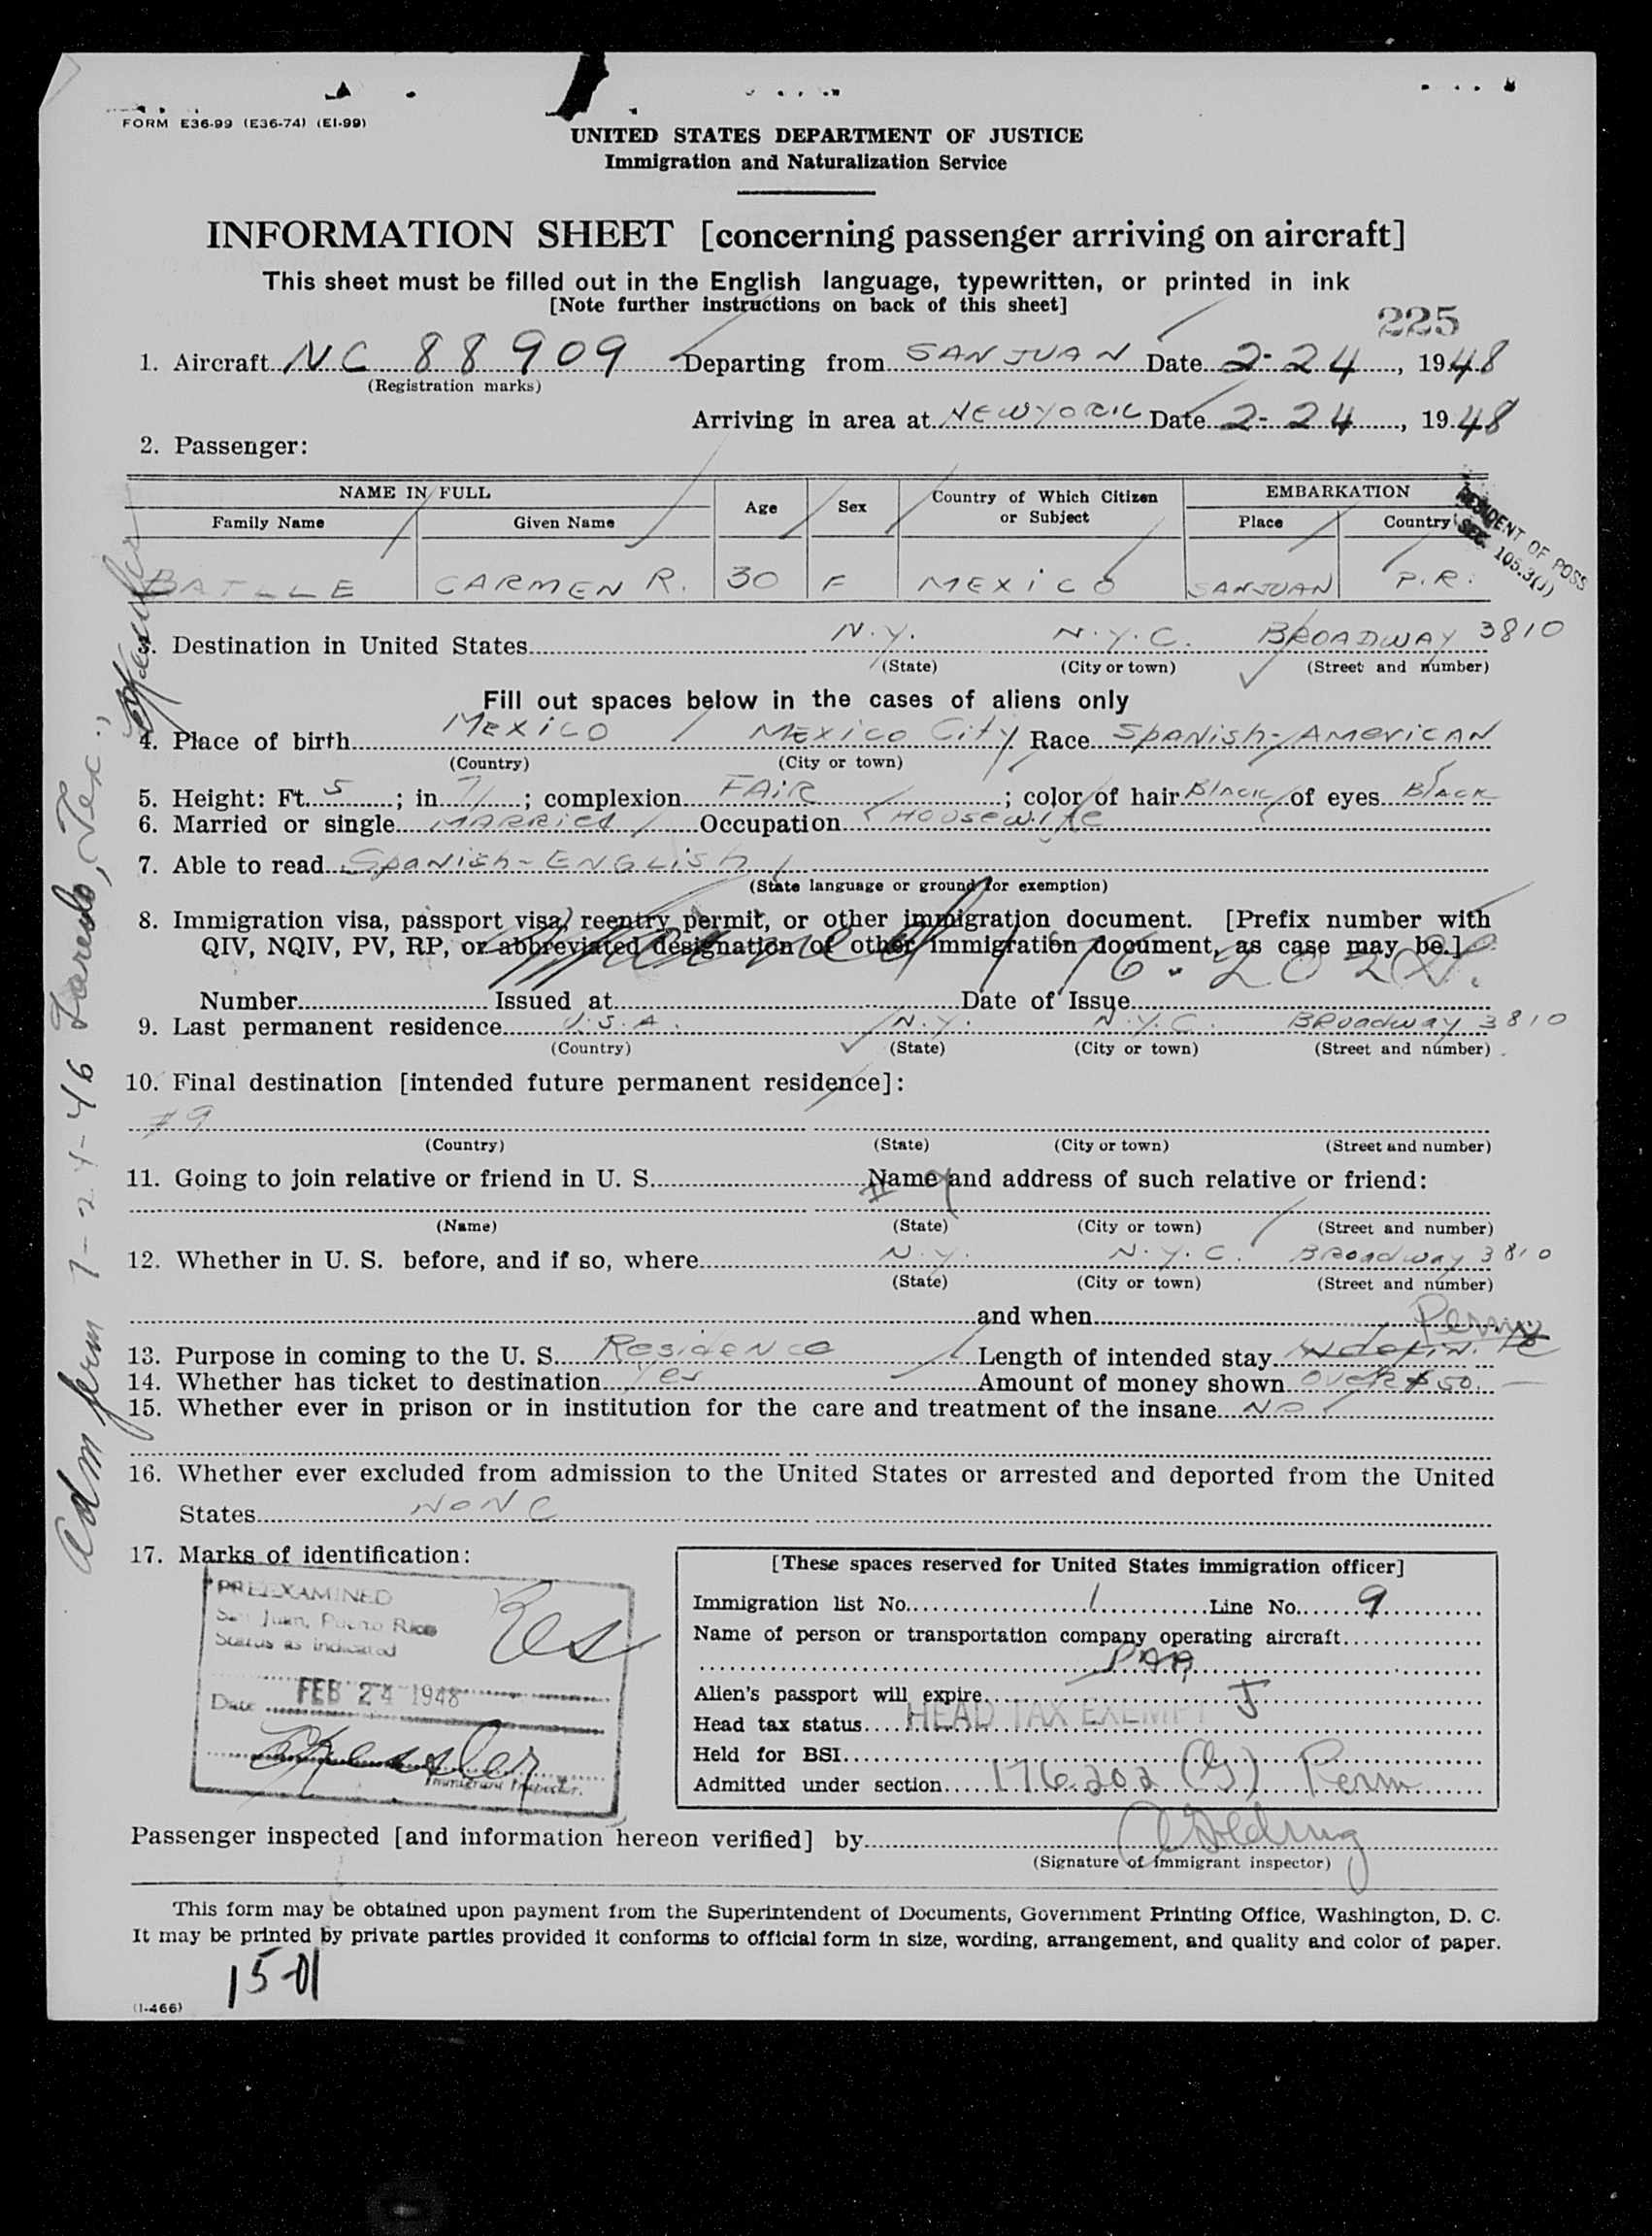 FORM E36-99 (E36-74) (E1-99)
UNITED STATES DEPARTMENT OF JUSTICE
Immigration and Naturalization Service
INFORMATION SHEET [concerning passenger arriving on aircraft]
This sheet must be filled out in the English language, typewritten, or printed in ink
[Note further instructions on back of this sheet]
225
1. Aircraft NC 88909 Departing from SAN JUAN Date 2-24, 1948
(Registration marks)
Arriving in area at NEW YORK Date 2-24, 1948
2. Passenger:
NAME IN FULL Age Sex Country of Which Citizen or Subject EMBARKATION
Family Name Given Name Place Country
RESIDENT OF POSS
SEC. 105.3(J)
BATLLE CARMEN R. 30 F MEXICO SAN JUAN P.R.
3. Destination in United States N.Y. N.Y.C. BROADWAY 3810
(State) (City or town) (Street and number)
Fill out spaces below in the cases of aliens only
4. Place of birth MEXICO MEXICO City Race SPANISH-AMERICAN
(Country) (City or town)
5. Height: Ft. 5; in 7; complexion FAIR; color of hair BLACK of eyes BLACK
6. Married or single MARRIED Occupation HOUSEWIFE
7. Able to read SPANISH-ENGLISH
(State language or ground for exemption)
8. Immigration visa, passport visa, reentry permit, or other immigration document. [Prefix number with
QIV, NQIV, PV, RP, or abbreviated designation of other immigration document, as case may be.]
Number Issued at Date of Issue
9. Last permanent residence U.S.A. N.Y. N.Y.C. Broadway 3810
(Country) (State) (City or town) (Street and number)
10. Final destination [intended future permanent residence]:
#9
(Country) (State) (City or town) (Street and number)
11. Going to join relative or friend in U. S. Name and address of such relative or friend:
(Name) (State) (City or town) (Street and number)
12. Whether in U. S. before, and if so, where N.Y. N.Y.C. Broadway 3810
(State) (City or town) (Street and number)
and when
13. Purpose in coming to the U. S. Residence Length of intended stay Perm
14. Whether has ticket to destination Yes Amount of money shown OVER $50.
15. Whether ever in prison or in institution for the care and treatment of the insane NO
16. Whether ever excluded from admission to the United States or arrested and deported from the United
States NONE
17. Marks of identification:
PREEXAMINED
San Juan, Puerto Rico
Status as indicated
Res
Date FEB 24 1948
Immigrant Inspector.
[These spaces reserved for United States immigration officer]
Immigration list No. 1 Line No. 9
Name of person or transportation company operating aircraft
PAA
Alien's passport will expire
Head tax status HEAD TAX EXEMPT
Held for BSI
Admitted under section 176.202 (G) Perm
Passenger inspected [and information hereon verified] by
(Signature of immigrant inspector)
This form may be obtained upon payment from the Superintendent of Documents, Government Printing Office, Washington, D. C.
It may be printed by private parties provided it conforms to official form in size, wording, arrangement, and quality and color of paper.
15-01
(I-466)
Adm perm 7-21-46 Laredo, Tex.